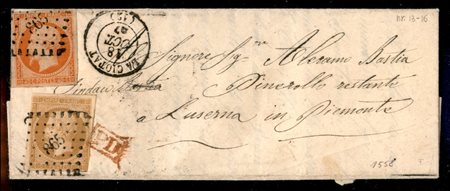 nr. 13-16
LA CIOTAT
18
OCT.
57
(12)
Signore Sig.r Abramo Bastia
Pinerolo restante
a Luserna in Piemonte
P.D.
1558